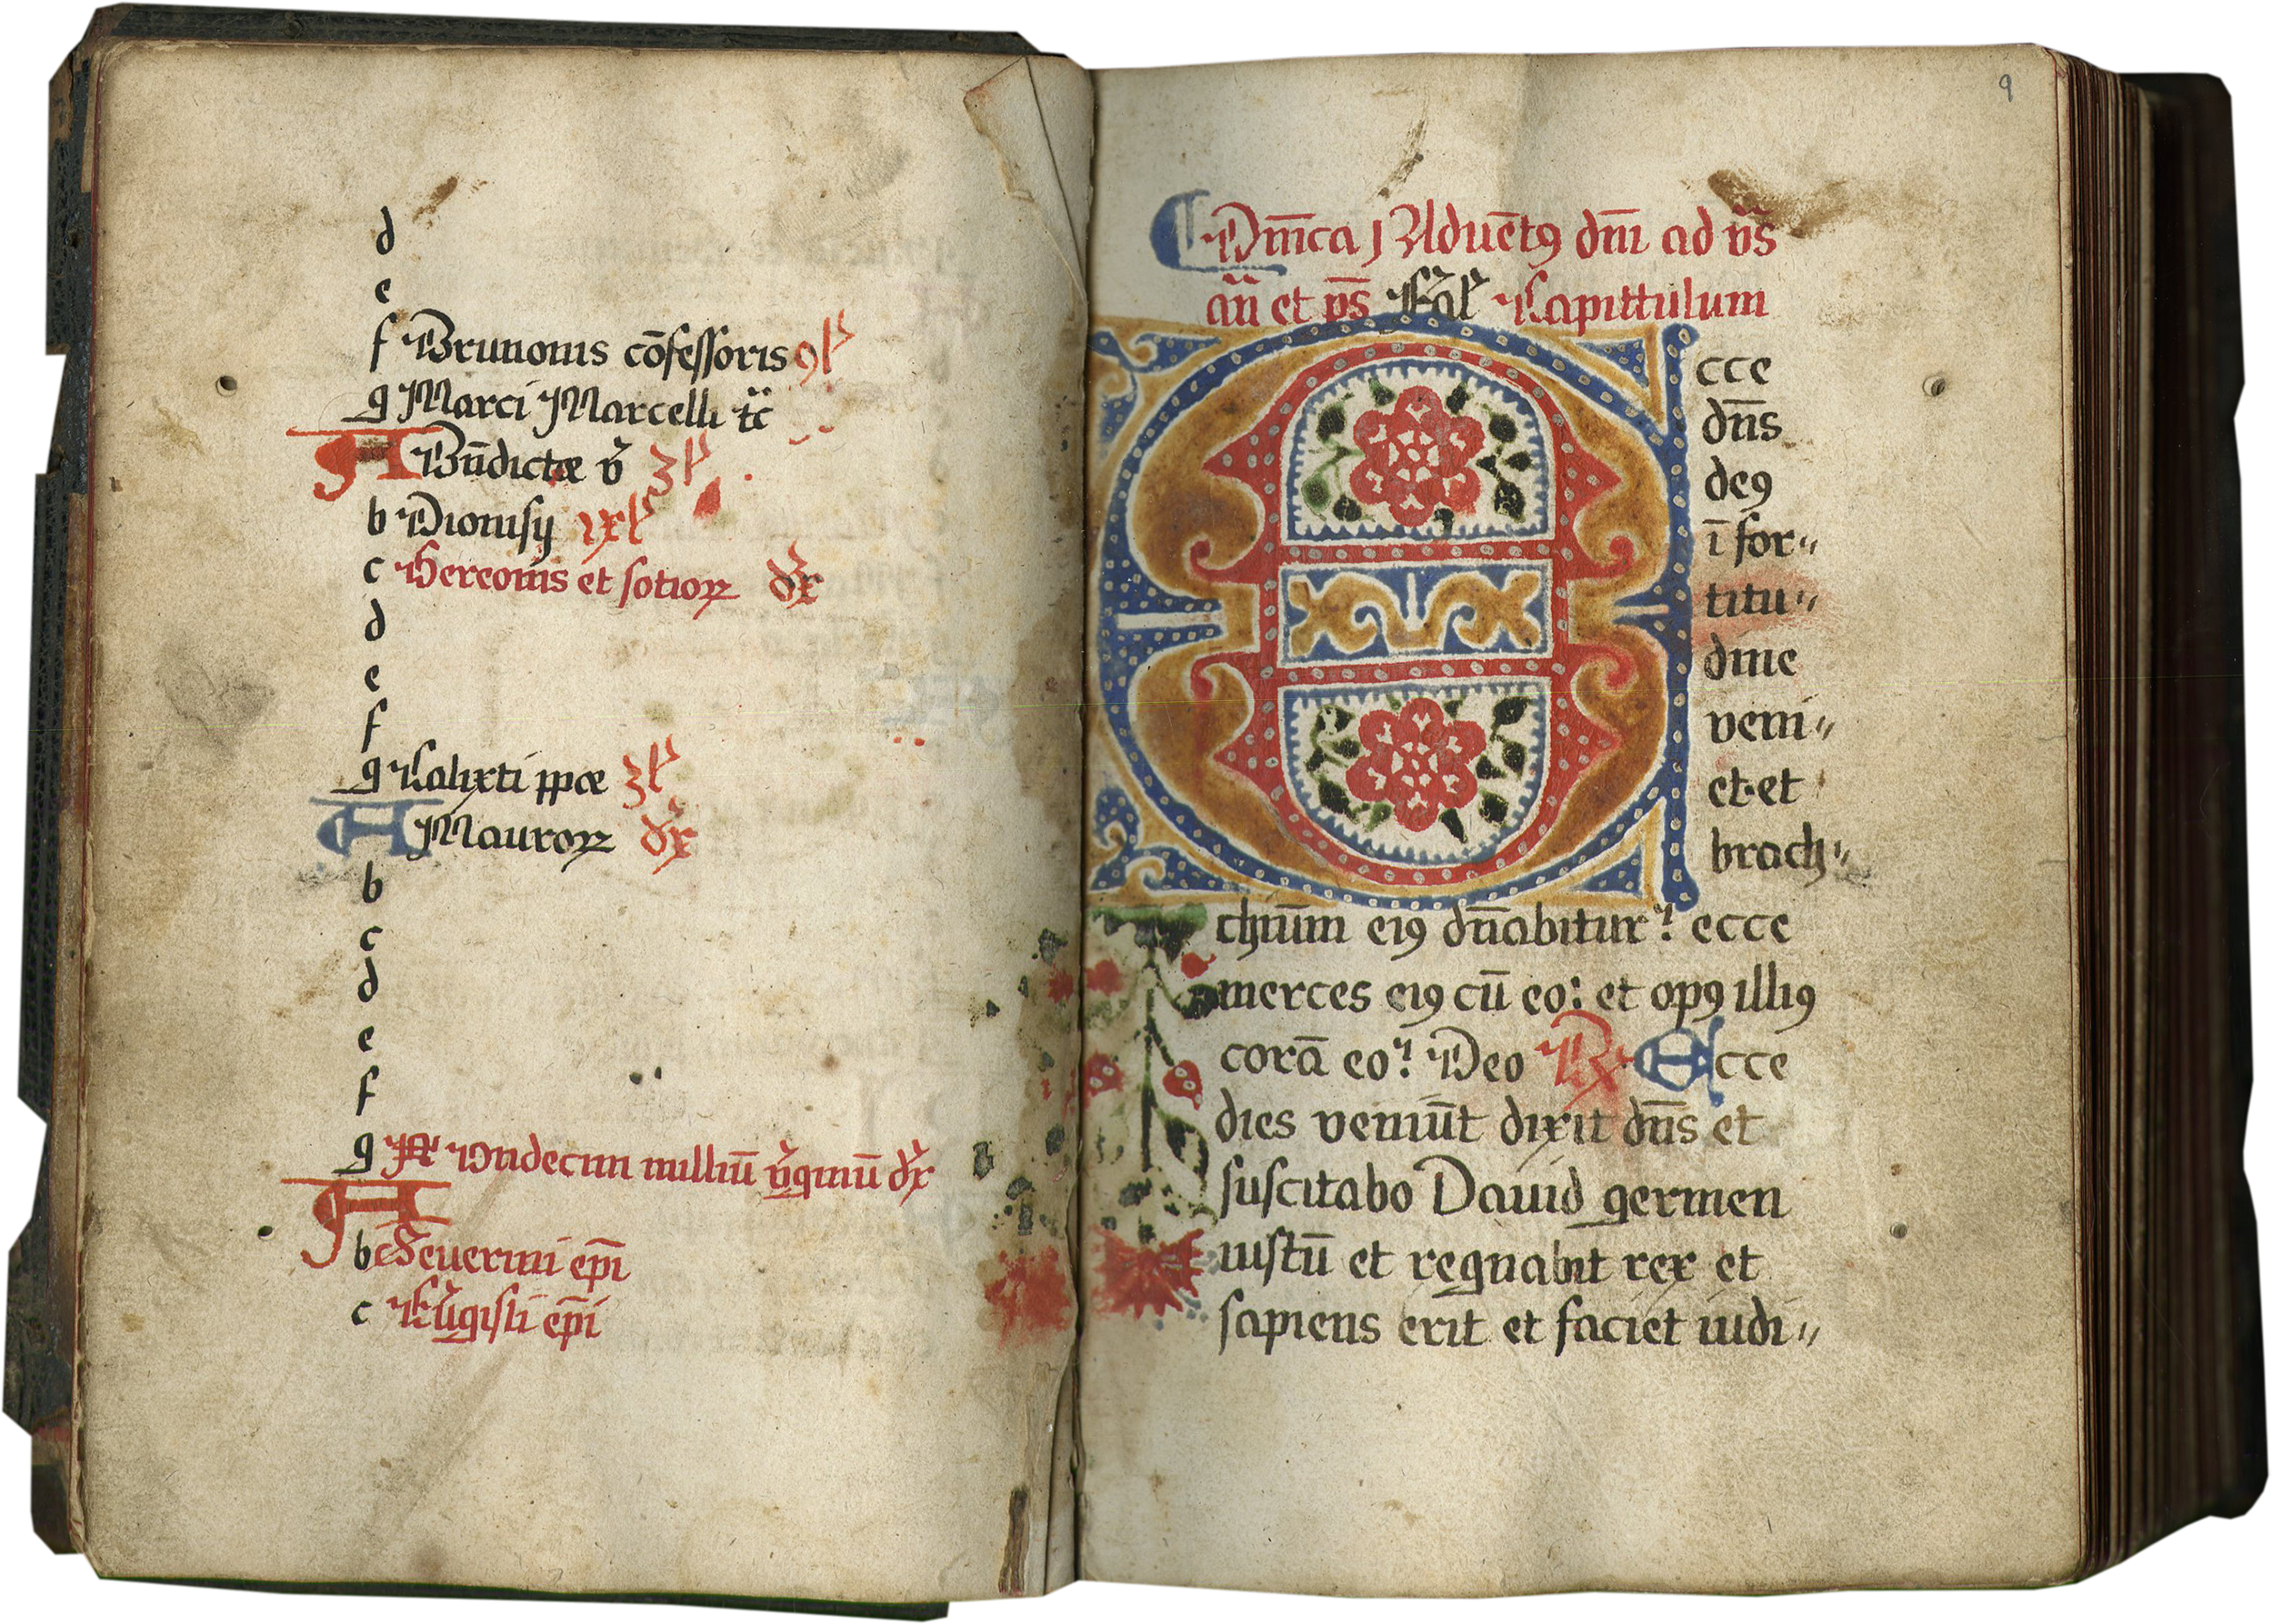 d
e
f Brunonis cōfessoris 9 l
g Marci Marcelli tc̄
A Bn̄dictæ v̉ 3 l
b Dionisij ix l
c Gereonis et sotioꝝ dx
d
e
f
g Calixti ppæ 3 l
A Mauroꝝ dx
b
c
d
e
f
g Undecim milliū v̉ginū dx
A
b Seuerini ep̄i
c Ev̉gisli ep̄i
9
Dn̄ica j Aduēt9 dn̄i ad vs̄
an̄ et ps̄ Capittulum
Ecce
dn̄s
de9
ī for〃
titu〃
dine
veni〃
et et
brach〃
chium ei9 dn̄abitur: ecce
merces ei9 cū eo: et op9 illi9
corā eo: Deo ℟ Ecce
dies veniūt dixit dn̄s et
suscitabo Dauid germen
iustū et regnabit rex et
sapiens erit et faciet iudi〃